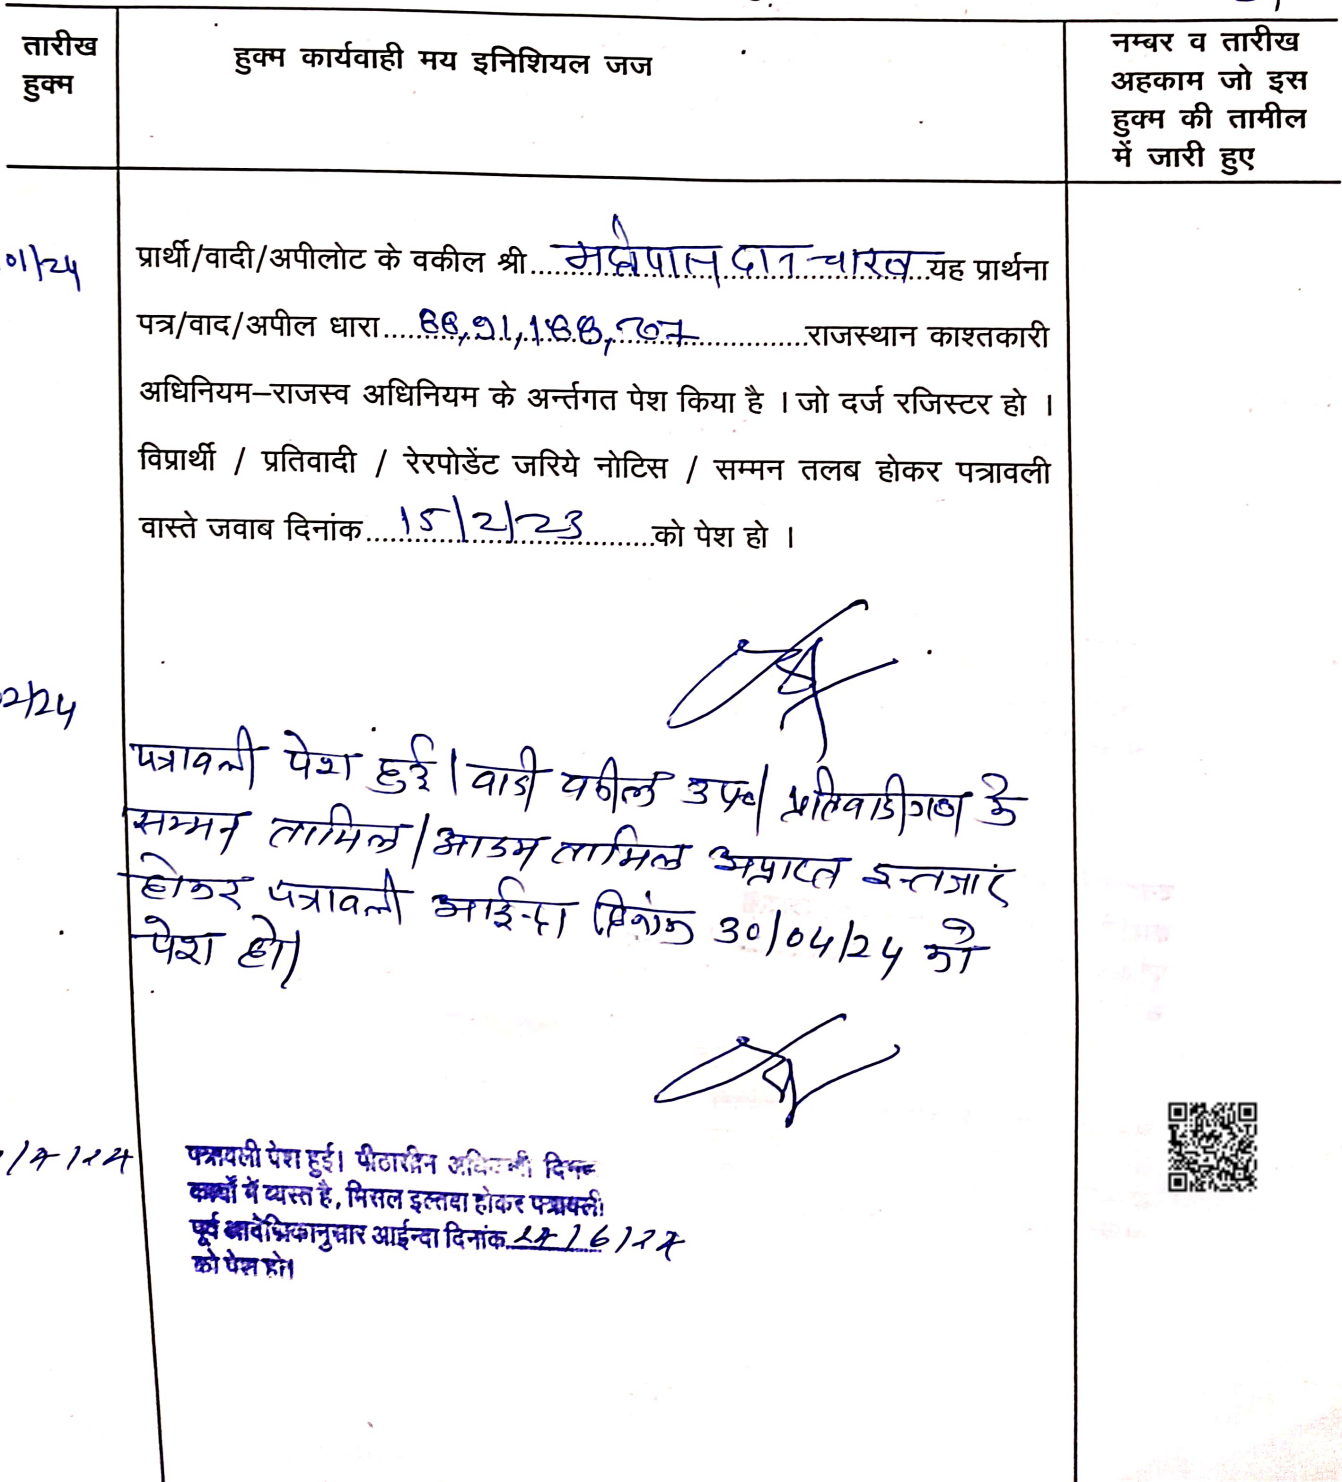 तारीख
हुक्म
हुक्म कार्यवाही मय इनिशियल जज
नम्बर व तारीख
अहकाम जो इस
हुक्म की तामील
में जारी हुए
01/24
प्रार्थी/वादी/अपीलोट के वकील श्री.....दान चारण.....यह प्रार्थना
पत्र/वाद/अपील धारा....88,91,188,207...............राजस्थान काश्तकारी
अधिनियम–राजस्व अधिनियम के अर्न्तगत पेश किया है । जो दर्ज रजिस्टर हो ।
विप्रार्थी / प्रतिवादी / रेरपोडेंट जरिये नोटिस / सम्मन तलब होकर पत्रावली
वास्ते जवाब दिनांक.....15/2/23.....को पेश हो ।
02/24
पत्रावली पेश हुई। वादी वकील उप०। प्रतिवादीगण के
सम्मन तामिल/आदम तामिल अप्राप्त इन्तजार
होकर पत्रावली आईन्दा दिनांक 30/04/24 को
पेश हो।
/4/24
पत्रावली पेश हुई। पीठासीन
कार्यों में व्यस्त है, मिसल इल्तवा होकर पत्रावली
पूर्व आदेशिकानुसार आईन्दा दिनांक 24/6/24
को पेश हो।